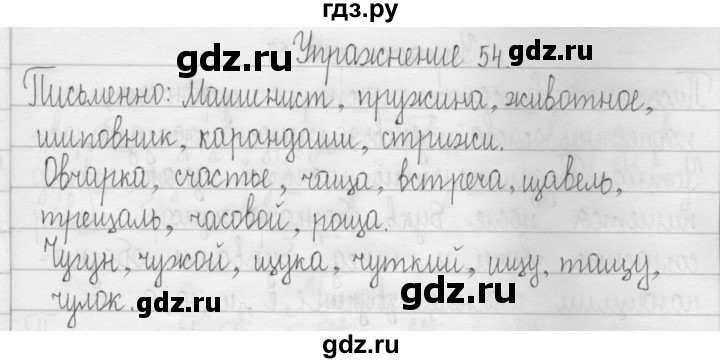 гдз.ру
Упражнение 54.
gdz.ru gdz.ru
Письменно: Машинист, пружина, животное,
шиповник, карандаши, стрижи.
gdz.ru gdz.ru
Овчарка, счастье, чаща, встреча, щавель,
трещаль, часовой, роща.
gdz.ru gdz.ru
Чугун, чужой, щука, чуткий, ищу, тащу,
чулок.
gdz.ru gdz.ru
gdz.ru